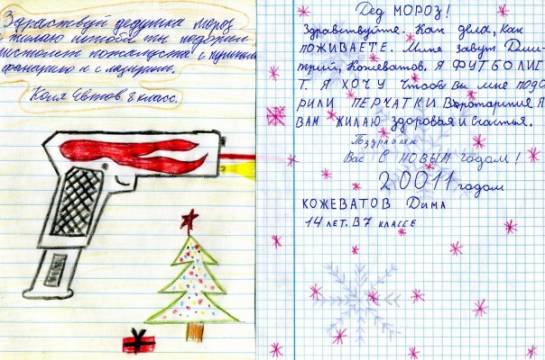 Здравствуй дедушка мороз
я жилаю чтобы ты подорил
пистолет пожалуста с
фонариком и с лазиром.
Коля 2 класс.
Дед МОРОЗ!
Здравствуйте. Как дела, как
ПОЖИВАЕТЕ. Меня завут Дми-
трий, Кожеватов. Я ФУТБОЛИС
Т. Я ХОЧУ чтобы Ви мне подо
РИЛИ ПЕРЧАТКИ Вороторские Я
ВАМ ЖИЛАЮ здоровья и счастья.
Поздровляю
Вас С НОВЫМ годом!
20011 годом
КОЖЕВАТОВ Дима
14 ЛЕТ. В7 КЛАССЕ